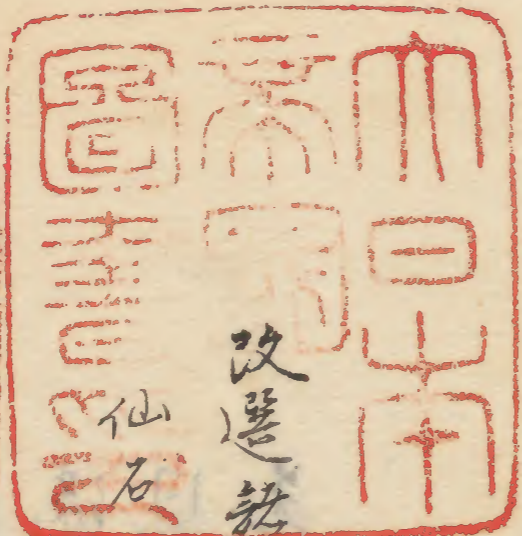 大日本
帝國
圖書印
改選諸
仙石